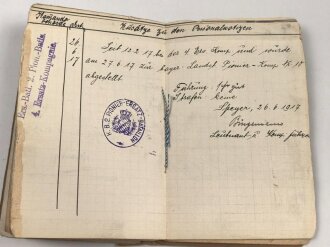 Zusätze zu den Personalnotizen
Ers. Batl. 2. Pion. Batls.
4. Ersatz-Kompagnie
26
6
17
Seit 12.2.17 bei der 4. Ers. Komp. und wurde
am 27.6.17 zur bayer. Landst. Pionier-Komp.
abgestellt.
Führung: sehr gut
Strafen: keine
Speyer, 26.6.1917
Leutnant u. Komp. führer
K.B. 2. PIONIER-ERSATZ-BATAILLON